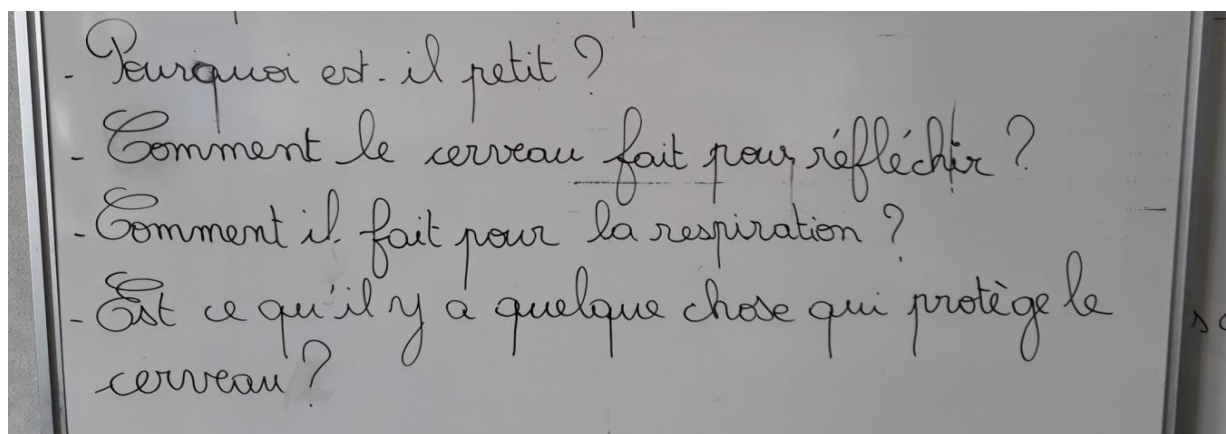 - Pourquoi est-il petit ?
- Comment le cerveau fait pour réfléchir ?
- Comment il fait pour la respiration ?
- Est ce qu'il y a quelque chose qui protège le
cerveau ?